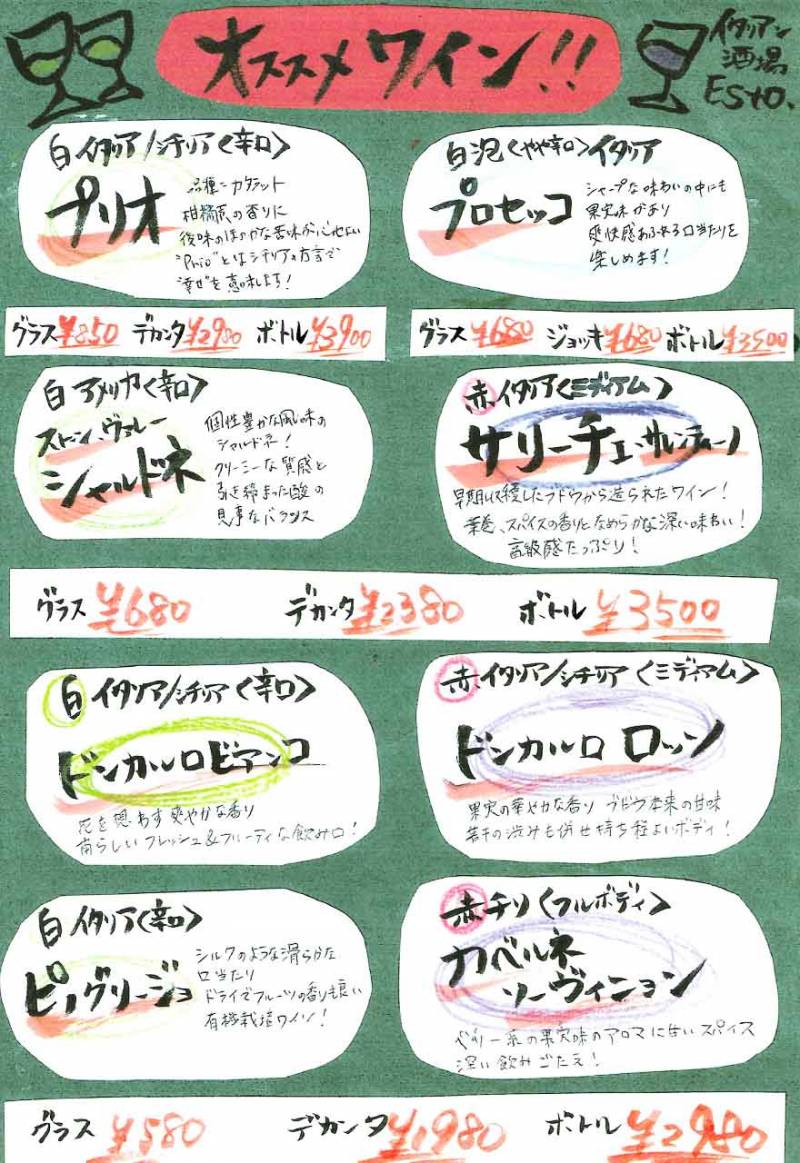 オススメワイン!!
イタリアン
酒場
Esto.
白 イタリア/シチリア〈辛口〉
プリオ
品種=カタラット
柑橘系の香りに
後味のほのかな苦味が心地よい
"Prio"とはシチリアの方言で
"幸せ"を意味します!
グラス¥850 デカンタ¥2980 ボトル¥3900
白泡〈やや辛口〉イタリア
プロセッコ
シャープな味わいの中にも
果実味があり
爽快感あふれる口当たりを
楽しめます!
グラス¥680 ジョッキ¥680 ボトル¥3500
白 アメリカ〈辛口〉
ストーン、ヴァレー
シャルドネ
個性豊かな風味の
シャルドネ!
クリーミーな質感と
引き締まった酸の
見事なバランス
赤 イタリア〈ミディアム〉
サリーチェ・サレンティーノ
早期収穫したブドウから造られたワイン!
葉巻、スパイスの香りとなめらかな深い味わい!
高級感たっぷり!
グラス ¥680 デカンタ¥2380 ボトル ¥3500
白 イタリア/シチリア〈辛口〉
ドンカルロビアンコ
花を思わす爽やかな香り
南らしいフレッシュ&フルーティな飲み口!
赤 イタリア/シチリア〈ミディアム〉
ドンカルロ ロッソ
果実の華やかな香り ブドウ本来の甘味
若干の渋みも併せ持ち程よいボディ!
白 イタリア〈辛口〉
ピノグリージョ
シルクのような滑らかな
口当たり
ドライフルーツの香りも良い
有機栽培ワイン!
赤 チリ〈フルボディ〉
カベルネ
ソーヴィニョン
ベリー系の果実味のアロマに甘いスパイス
深い飲みごたえ!
グラス ¥580 デカンタ ¥1980 ボトル ¥2980